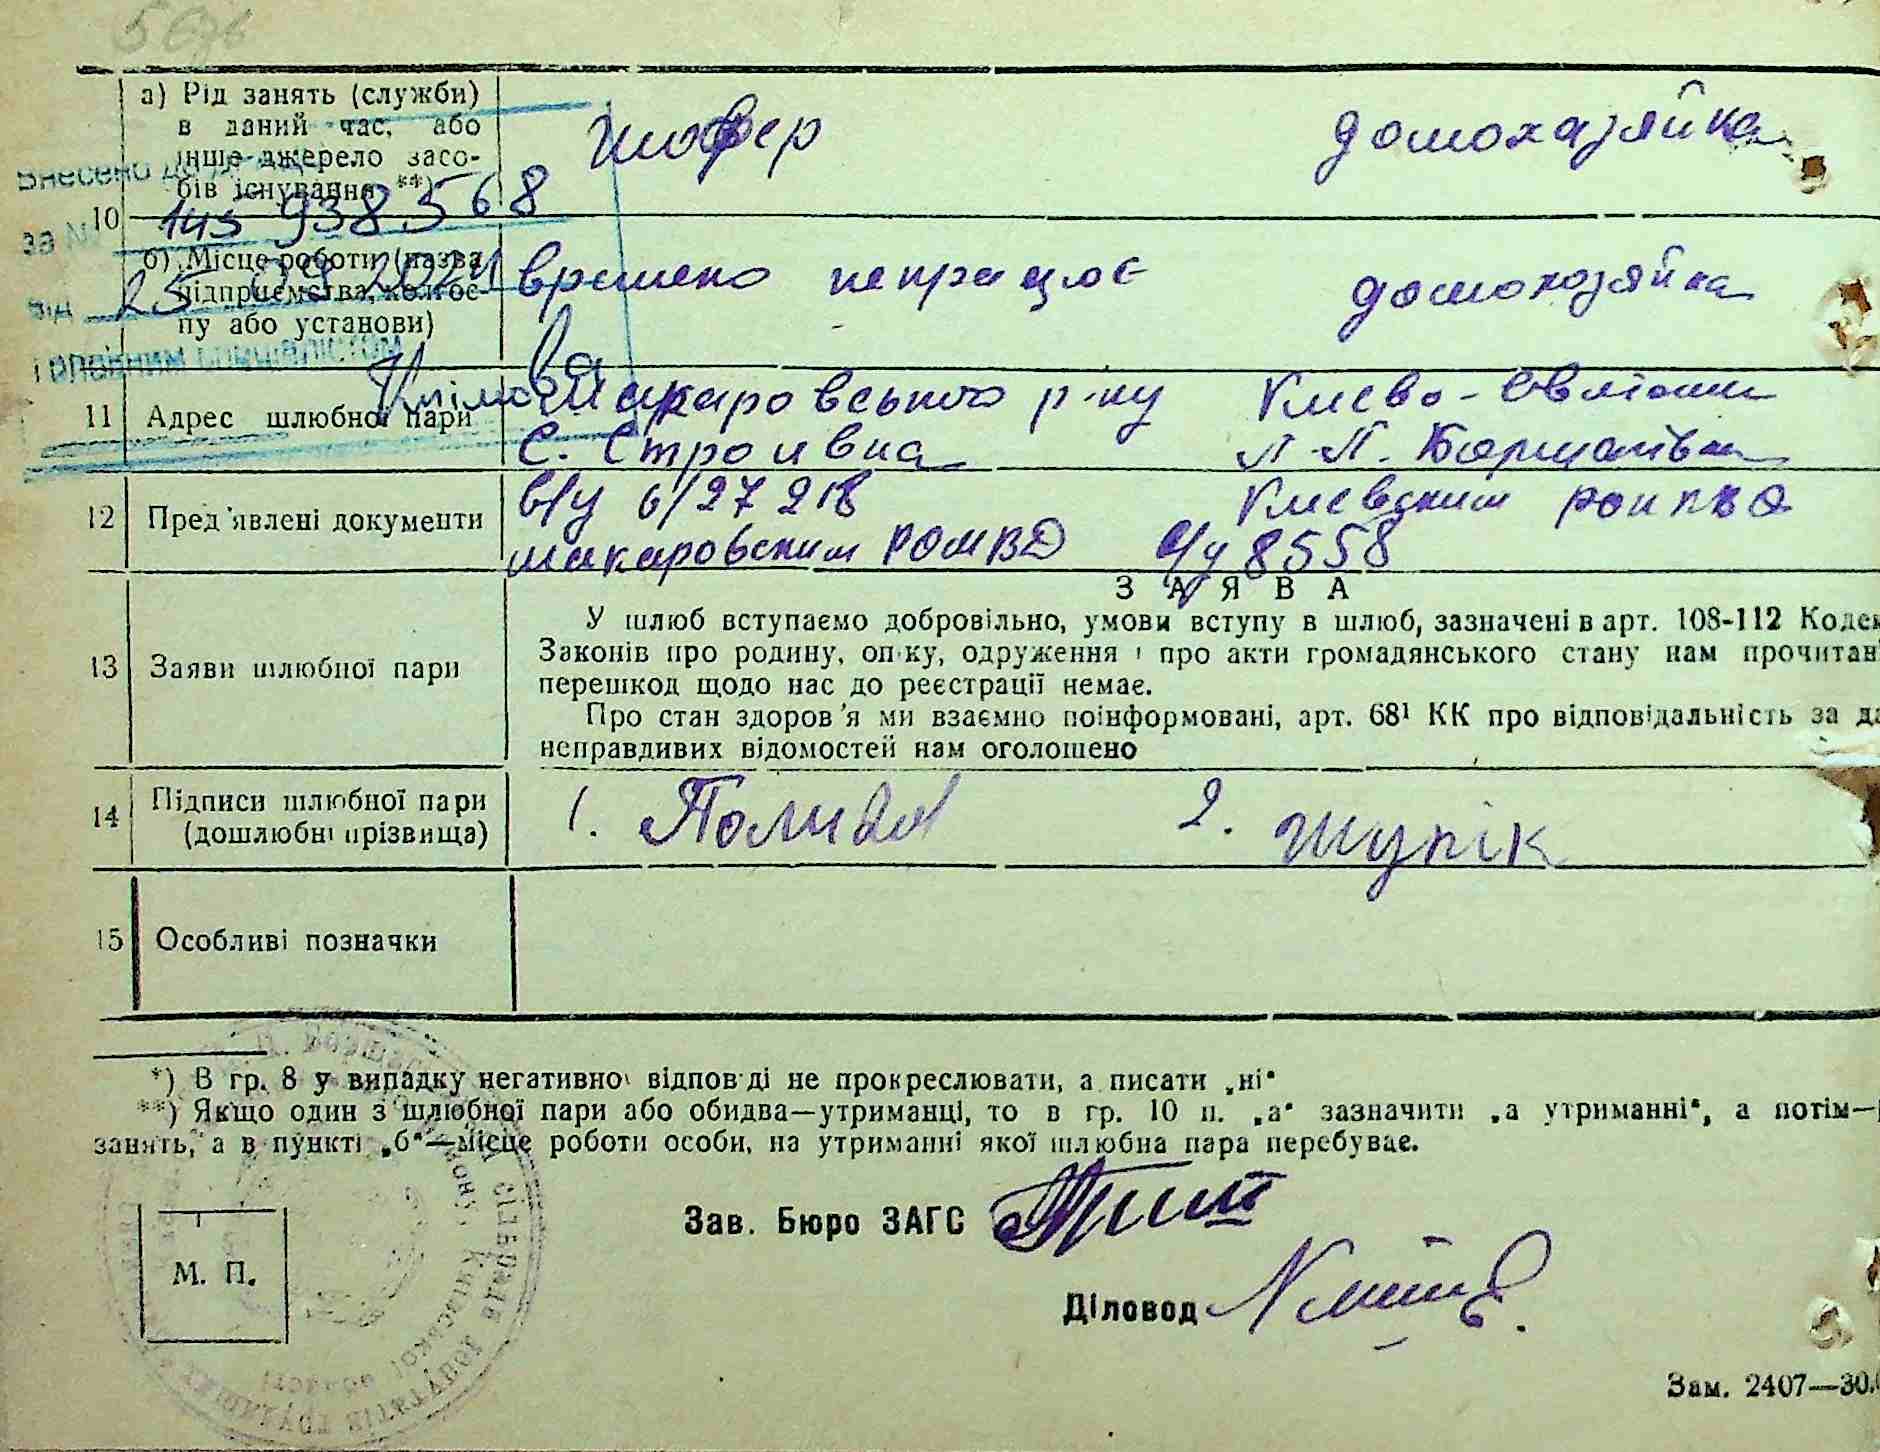 а) Рід занять (служби)
в даний час, або
інше джерело засо-
бів існування **)
шофер домохазяйка
Внесено до
за №
938568
10
б) Місце роботи (назва
підприємства, колгос-
пу або установи)
времено непрацює домохозяйка
від 25 09 2024
головним спеціалістом
11 Адрес шлюбної пари
Макаровського р-ну
С. Строивка
Києво-
12 Пред'явлені документи
в/у 6/27218
макаровским РОМВД
Киевским
8558
ЗАЯВА
13 Заяви шлюбної пари
У шлюб вступаємо добровільно, умови вступу в шлюб, зазначені в арт. 108-112 Кодек
Законів про родину, опіку, одруження і про акти громадянського стану нам прочитані
перешкод щодо нас до реєстрації немає.
Про стан здоров'я ми взаємно поінформовані, арт. 68¹ КК про відповідальність за да
неправдивих відомостей нам оголошено
14 Підписи шлюбної пари
(дошлюбні прізвища)
1. 2. Шупік
15 Особливі позначки
*) В гр. 8 у випадку негативної відповіді не прокреслювати, а писати „ні“
**) Якщо один з шлюбної пари або обидва—утриманці, то в гр. 10 п. „а“ зазначити „а утриманні“, а потім—
занять, а в пункті „б“—місце роботи особи, на утриманні якої шлюбна пара перебуває.
Зав. Бюро ЗАГС
М. П.
Діловод
Зам. 2407—30.